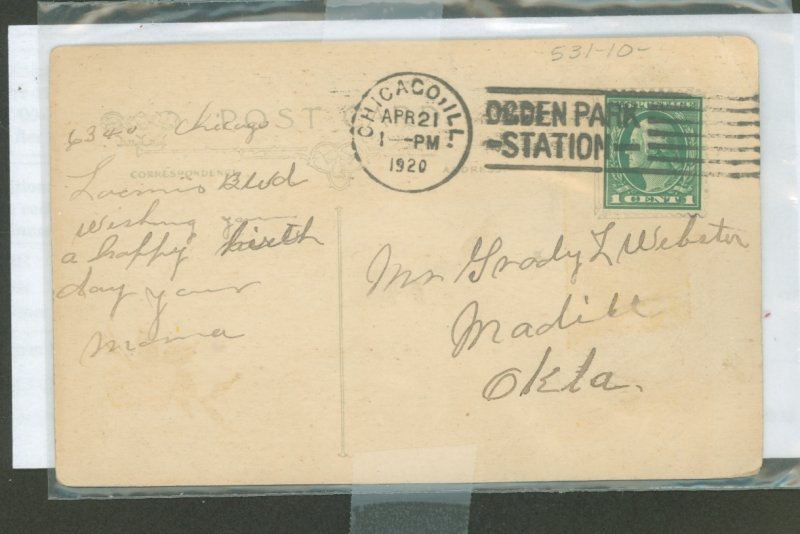 531-10-
POST CARD
CHICAGO, ILL.
APR 21
1-PM
1920
OGDEN PARK
-STATION-
1 CENT 1
CORRESPONDENCE
ADDRESS
6340 Chicago
Loomis Blvd
Wishing you
a happy birth
day your
Mama
Mr Grady L Webster
Madill
Okla.